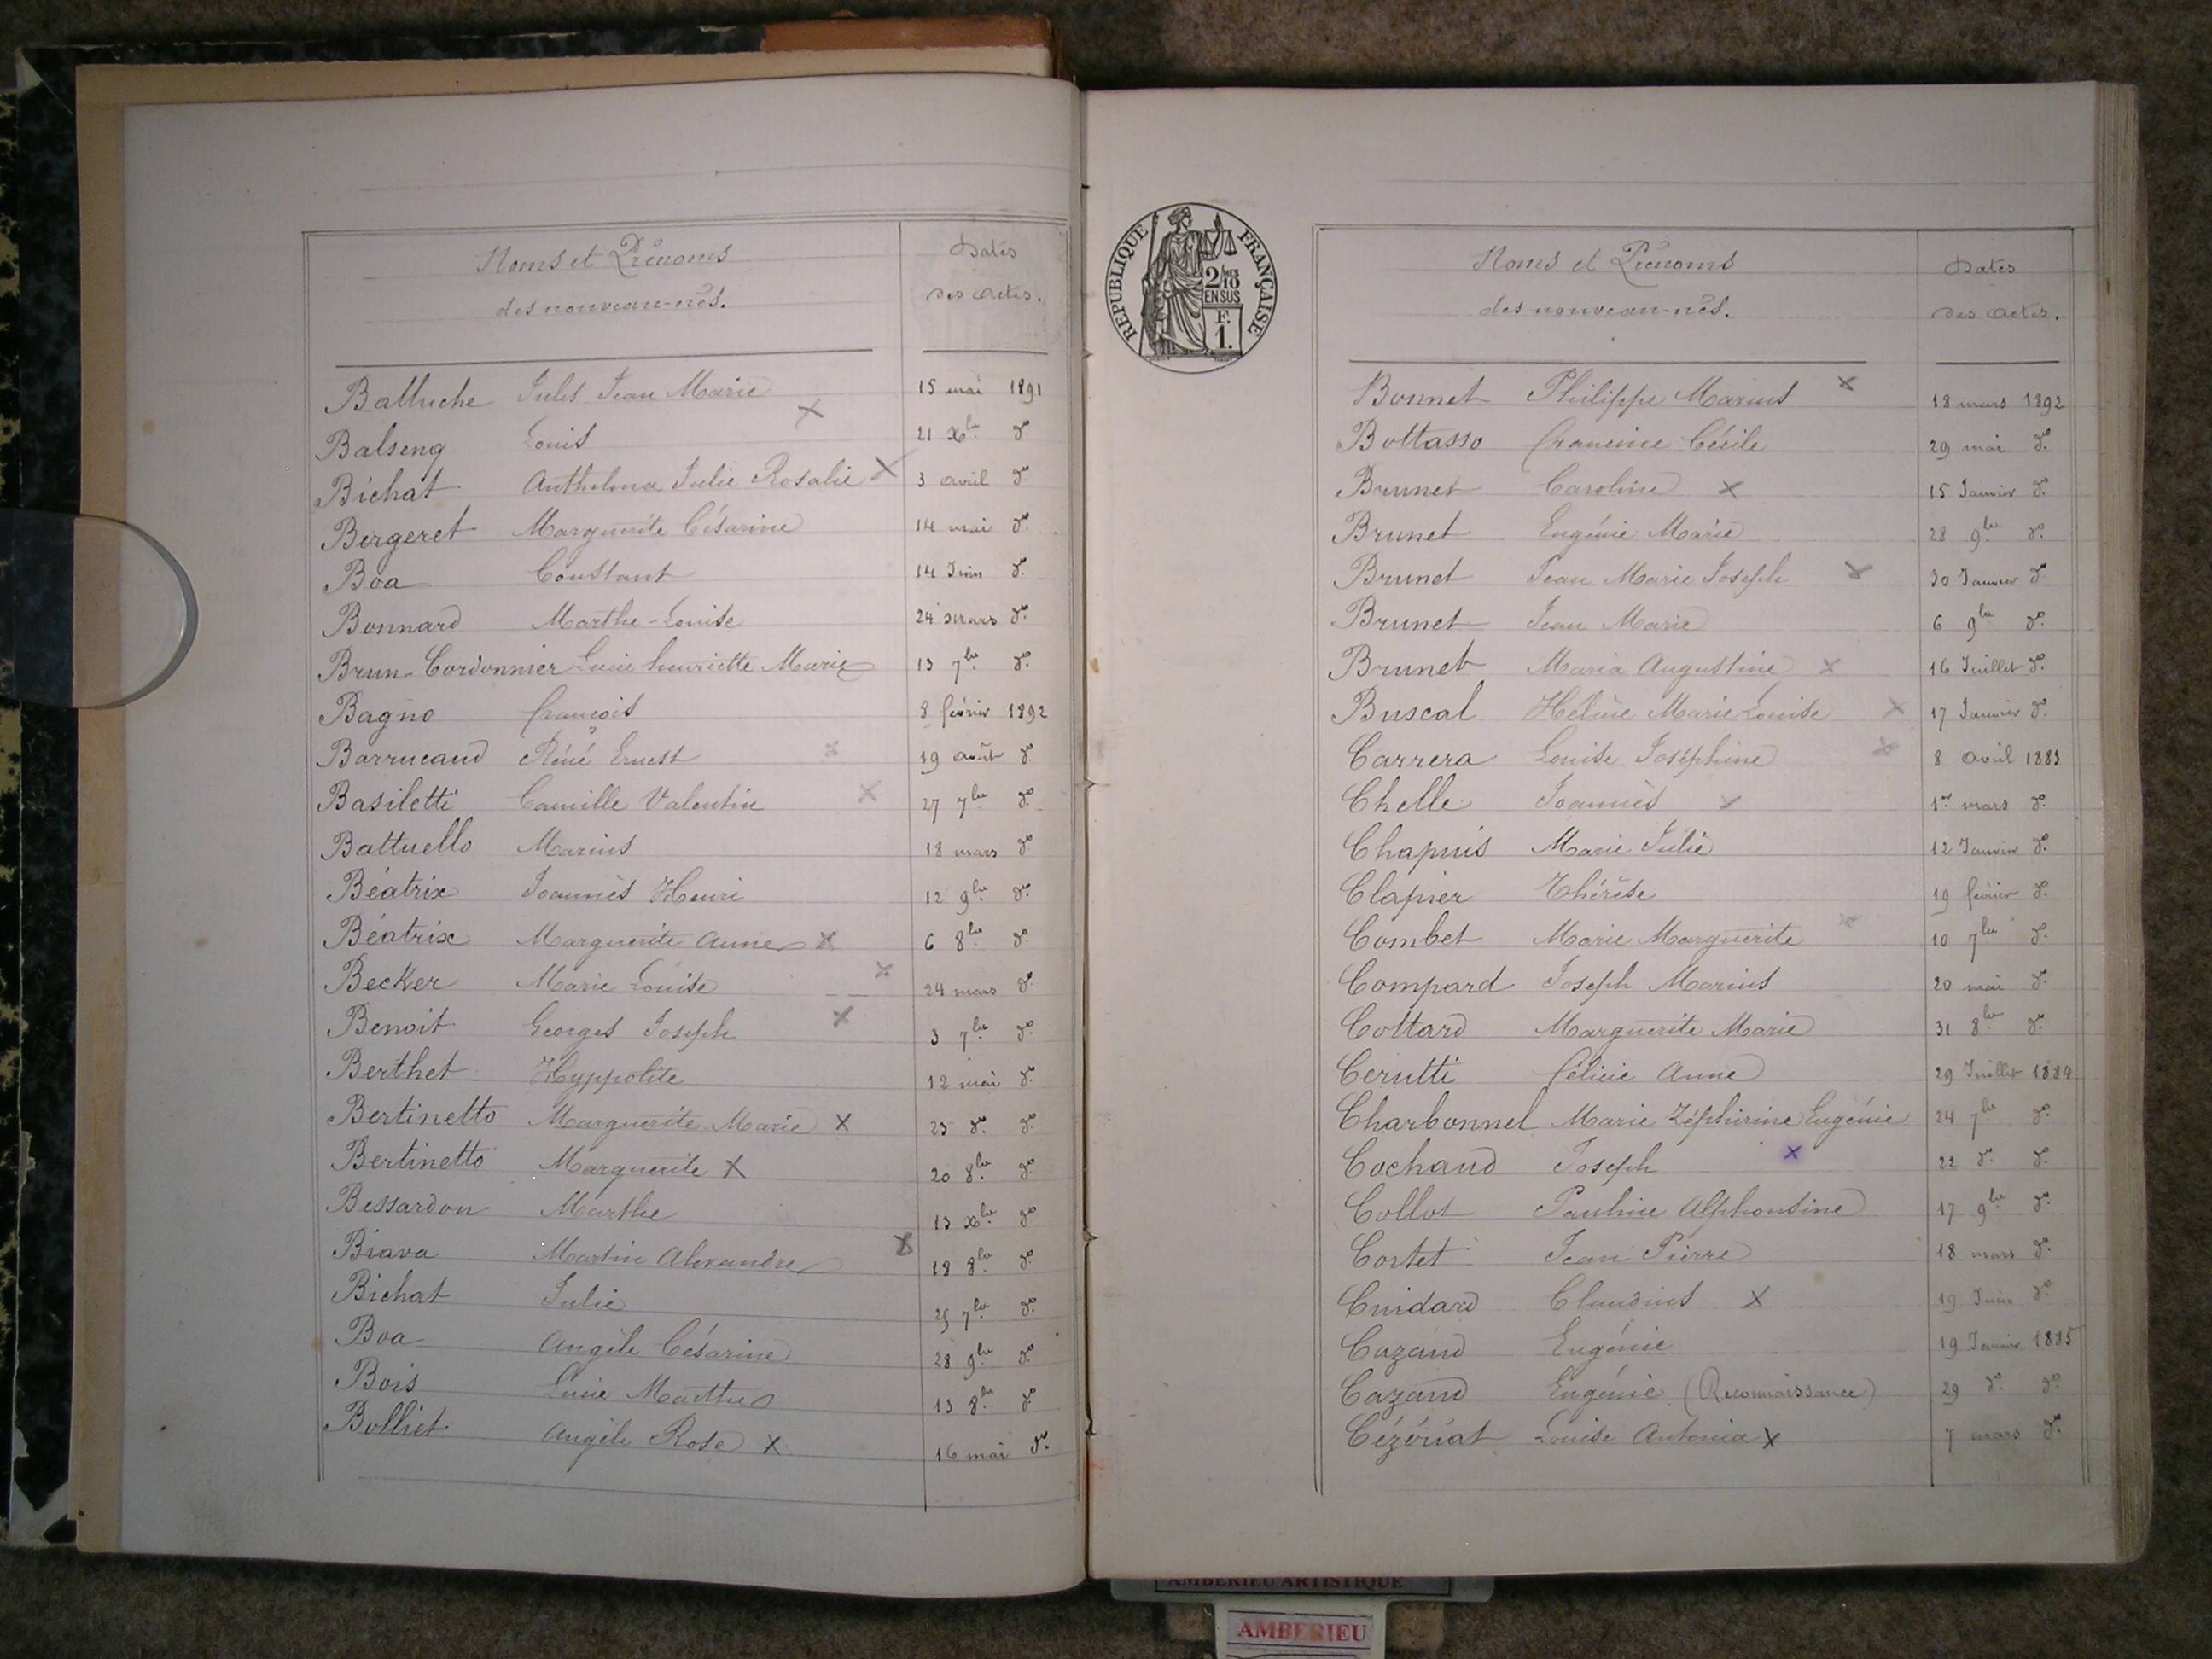 Noms et Prénoms
des nouveau-nés.
Dates
des actes.
Balluche Jules Jean Marie 15 mai 1891
Balseng Louis 21 Xbre do
Bichat Anthelma Julie Rosalie 3 avril do
Bergeret Marguerite Césarine 14 mai do
Boa Constant 14 Juin do
Bonnard Marthe-Louise 24 mars do
Brun-Cordonnier Lucie henriette Marie 13 7bre do
Bagno françois 8 février 1892
Barrucand Réné Ernest 19 août do
Basiletti Camille Valentin 27 7bre do
Battuello Marius 18 mars do
Béatrix Joannès Henri 12 9bre do
Béatrix Marguerite Anne 6 8bre do
Becker Marie Louise 24 mars do
Benoit Georges Joseph 3 7bre do
Berthet Hyppolite 12 mai do
Bertinetto Marguerite Marie 23 do do
Bertinetto Marguerite 20 8bre do
Bessardon Marthe 13 Xbre do
Biava Martin Alexandre 18 8bre do
Bichat Julie 25 7bre do
Boa Angèle Césarine 28 9bre do
Bois Lucie Marthe 13 8bre do
Bolliet Angèle Rose 16 mai do
REPUBLIQUE FRANÇAISE
2/10mes
EN SUS
F.
1.
Noms et Prénoms
des nouveau-nés.
Dates
des actes.
Bonnet Philippe Marius 18 mars 1892
Bottasso francine Cécile 29 mai do
Brunet Caroline 15 Janvier do
Brunet Eugénie Marie 28 9bre do
Brunet Jean Marie Joseph 30 Janvier do
Brunet Jean Marie 6 9bre do
Brunet Maria Augustine 16 Juillet do
Buscal Hélène Marie Louise 17 Janvier do
Carrera Louise Joséphine 8 avril 1883
Chelle Joannès 1er mars do
Chapuis Marie Julie 12 Janvier do
Clapier Thérèse 19 février do
Combet Marie Marguerite 10 7bre do
Compard Joseph Marius 20 mai do
Cottard Marguerite Marie 31 8bre do
Cerutti félicie Anne 29 Juillet 1884
Charbonnel Marie Zéphirine Eugénie 24 7bre do
Cochand Joseph 22 do do
Collot Pauline Alphonsine 17 9bre do
Cortet Jean Pierre 18 mars do
Cuidard Claudius 19 Juin do
Cazand Eugénie 19 Janvier 1885
Cazand Eugénie (Reconnaissance) 29 do do
Cézériat Louise Antonia 7 mars do
AMBERIEU ARTISTIQUE
AMBERIEU